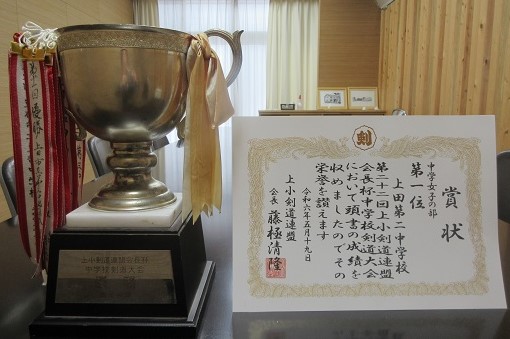 剣
賞状
中学女子の部
第一位
上田第二中学校
第二十二回上小剣道連盟
会長杯中学校剣道大会
において頭書の成績を
収めましたのでその
栄誉を讃えます
令和六年五月十九日
上小剣道連盟
会長 藤極清隆
上小剣道連盟会長杯
中学校剣道大会
優勝